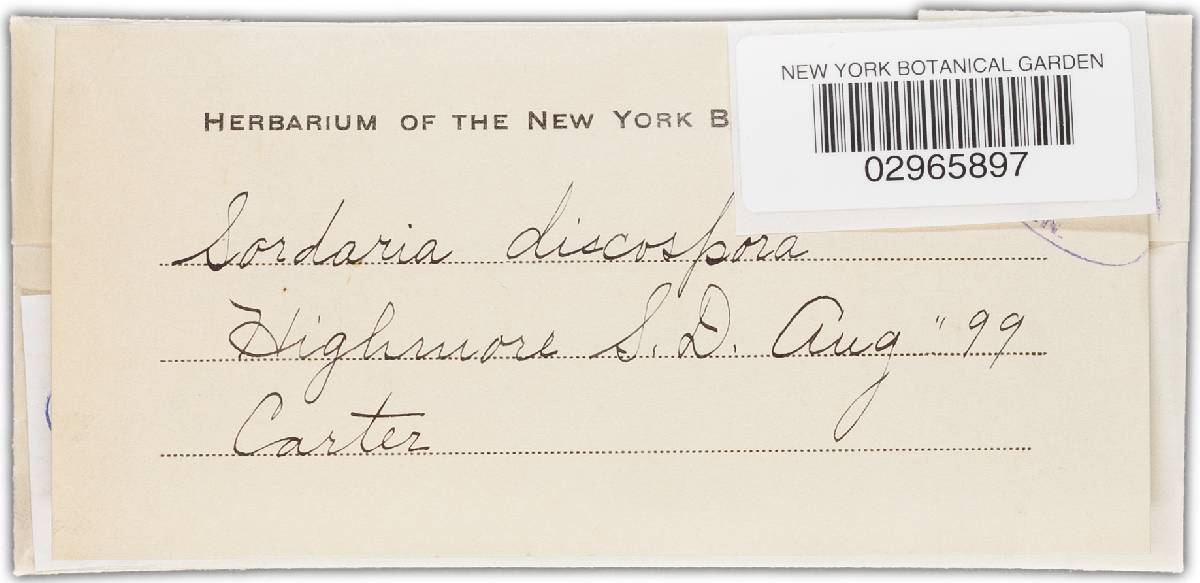 HERBARIUM OF THE NEW YORK B
NEW YORK BOTANICAL GARDEN
02965897
Sordaria discospora
Highmore S.D. Aug "99
Carter